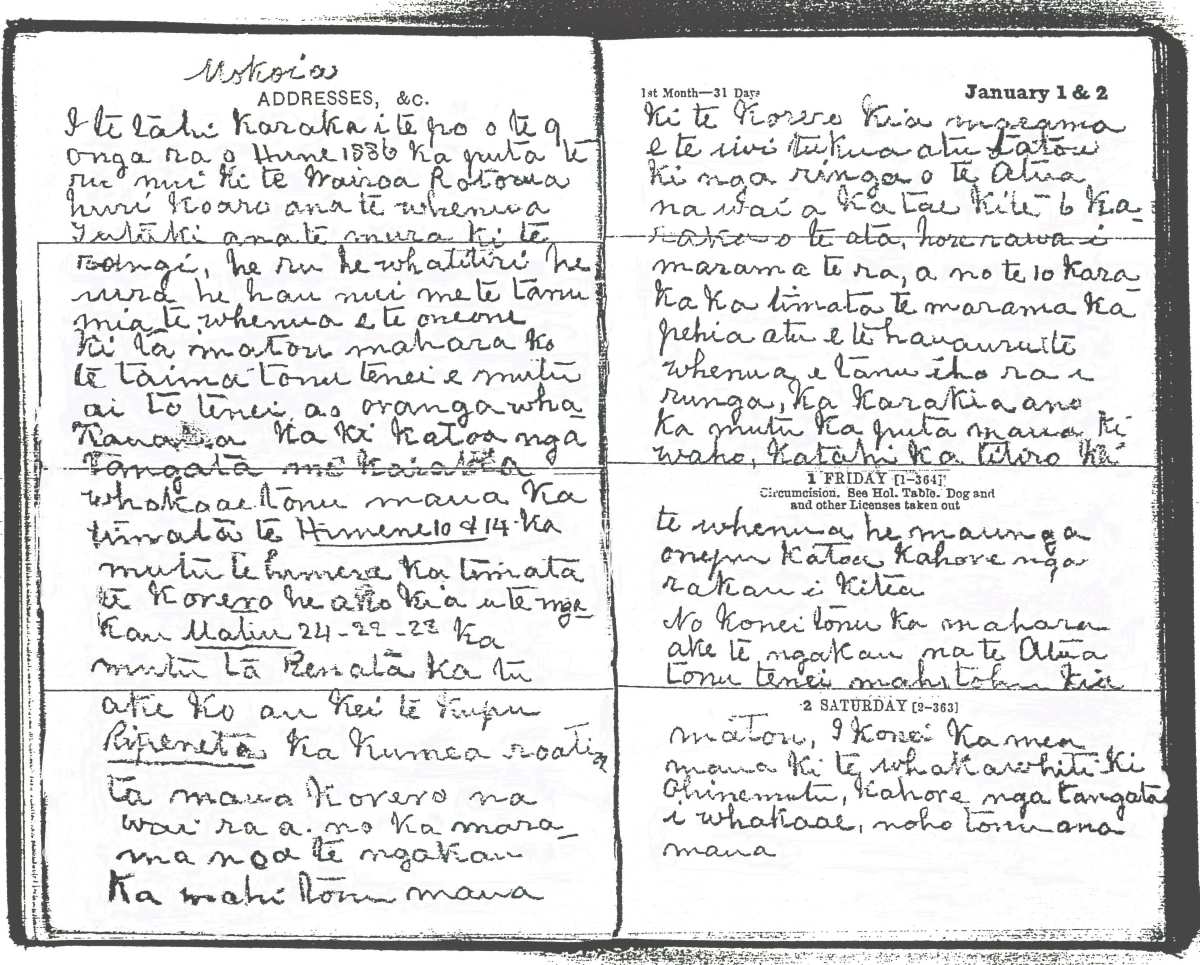 Mokoia
ADDRESSES, &C.
I te tahi Karaka i te po o te 9
onga ra o Hune 1886 Ka puta te
ru nui ki te Wairoa Rotorua
huri Koaro ana te whenua
Tutuki ana te mura ki te
rangi, he ru he whatitiri he
uira he hau nui me te tanu
mia te whenua e te oneone
Ki ta matou mahara Ko
te taima tonu tenei e mutu
ai to tenei ao oranga wha
Ka Ki Katoa nga
tangata me Karakia
whakaae tonu maua Ka
timata te Himene 10 & 14. Ka
mutu te himene Ka timata
te Korero he ako Kia u te nga-
Kau Matiu 24-22-23 Ka
mutu ta Renata Ka tu
ake Ko au Kei te Kupu
Ripeneta Ka Kumea roatia
ta maua Korero na
wai ra a. no Ka mara-
ma noa te ngakau
Ka mahi tonu maua
1st Month—31 Days
January 1 & 2
Ki te Korero Kia marama
e te iwi tukua atu tatou
Ki nga ringa o te Atua
na wai a Ka tae Ki te 6 Ka-
raka o te ata, hore rawa i
marama te ra, a no te 10 Kara
Ka Ka timata te marama Ka
pehia atu e te hauauru te
whenua e tanu iho ra i
runga, Ka Karakia ano
Ka mutu Ka puta maua Ki
waho, Katahi Ka titiro Ki
1 FRIDAY [1-364]
Circumcision. See Hol. Table. Dog and
and other Licenses taken out
te whenua he maunga
onepu Katoa Kahore nga
rakau i Kitea
No Konei tonu Ka mahara
ake te ngakau na te Atua
tonu tenei mahi tohu Kia
2 SATURDAY [2-363]
matou, I Konei Ka mea
maua Ki te whakawhiti Ki
Ohinemutu, Kahore nga tangata
i whakaae, noho tonu ana
maua